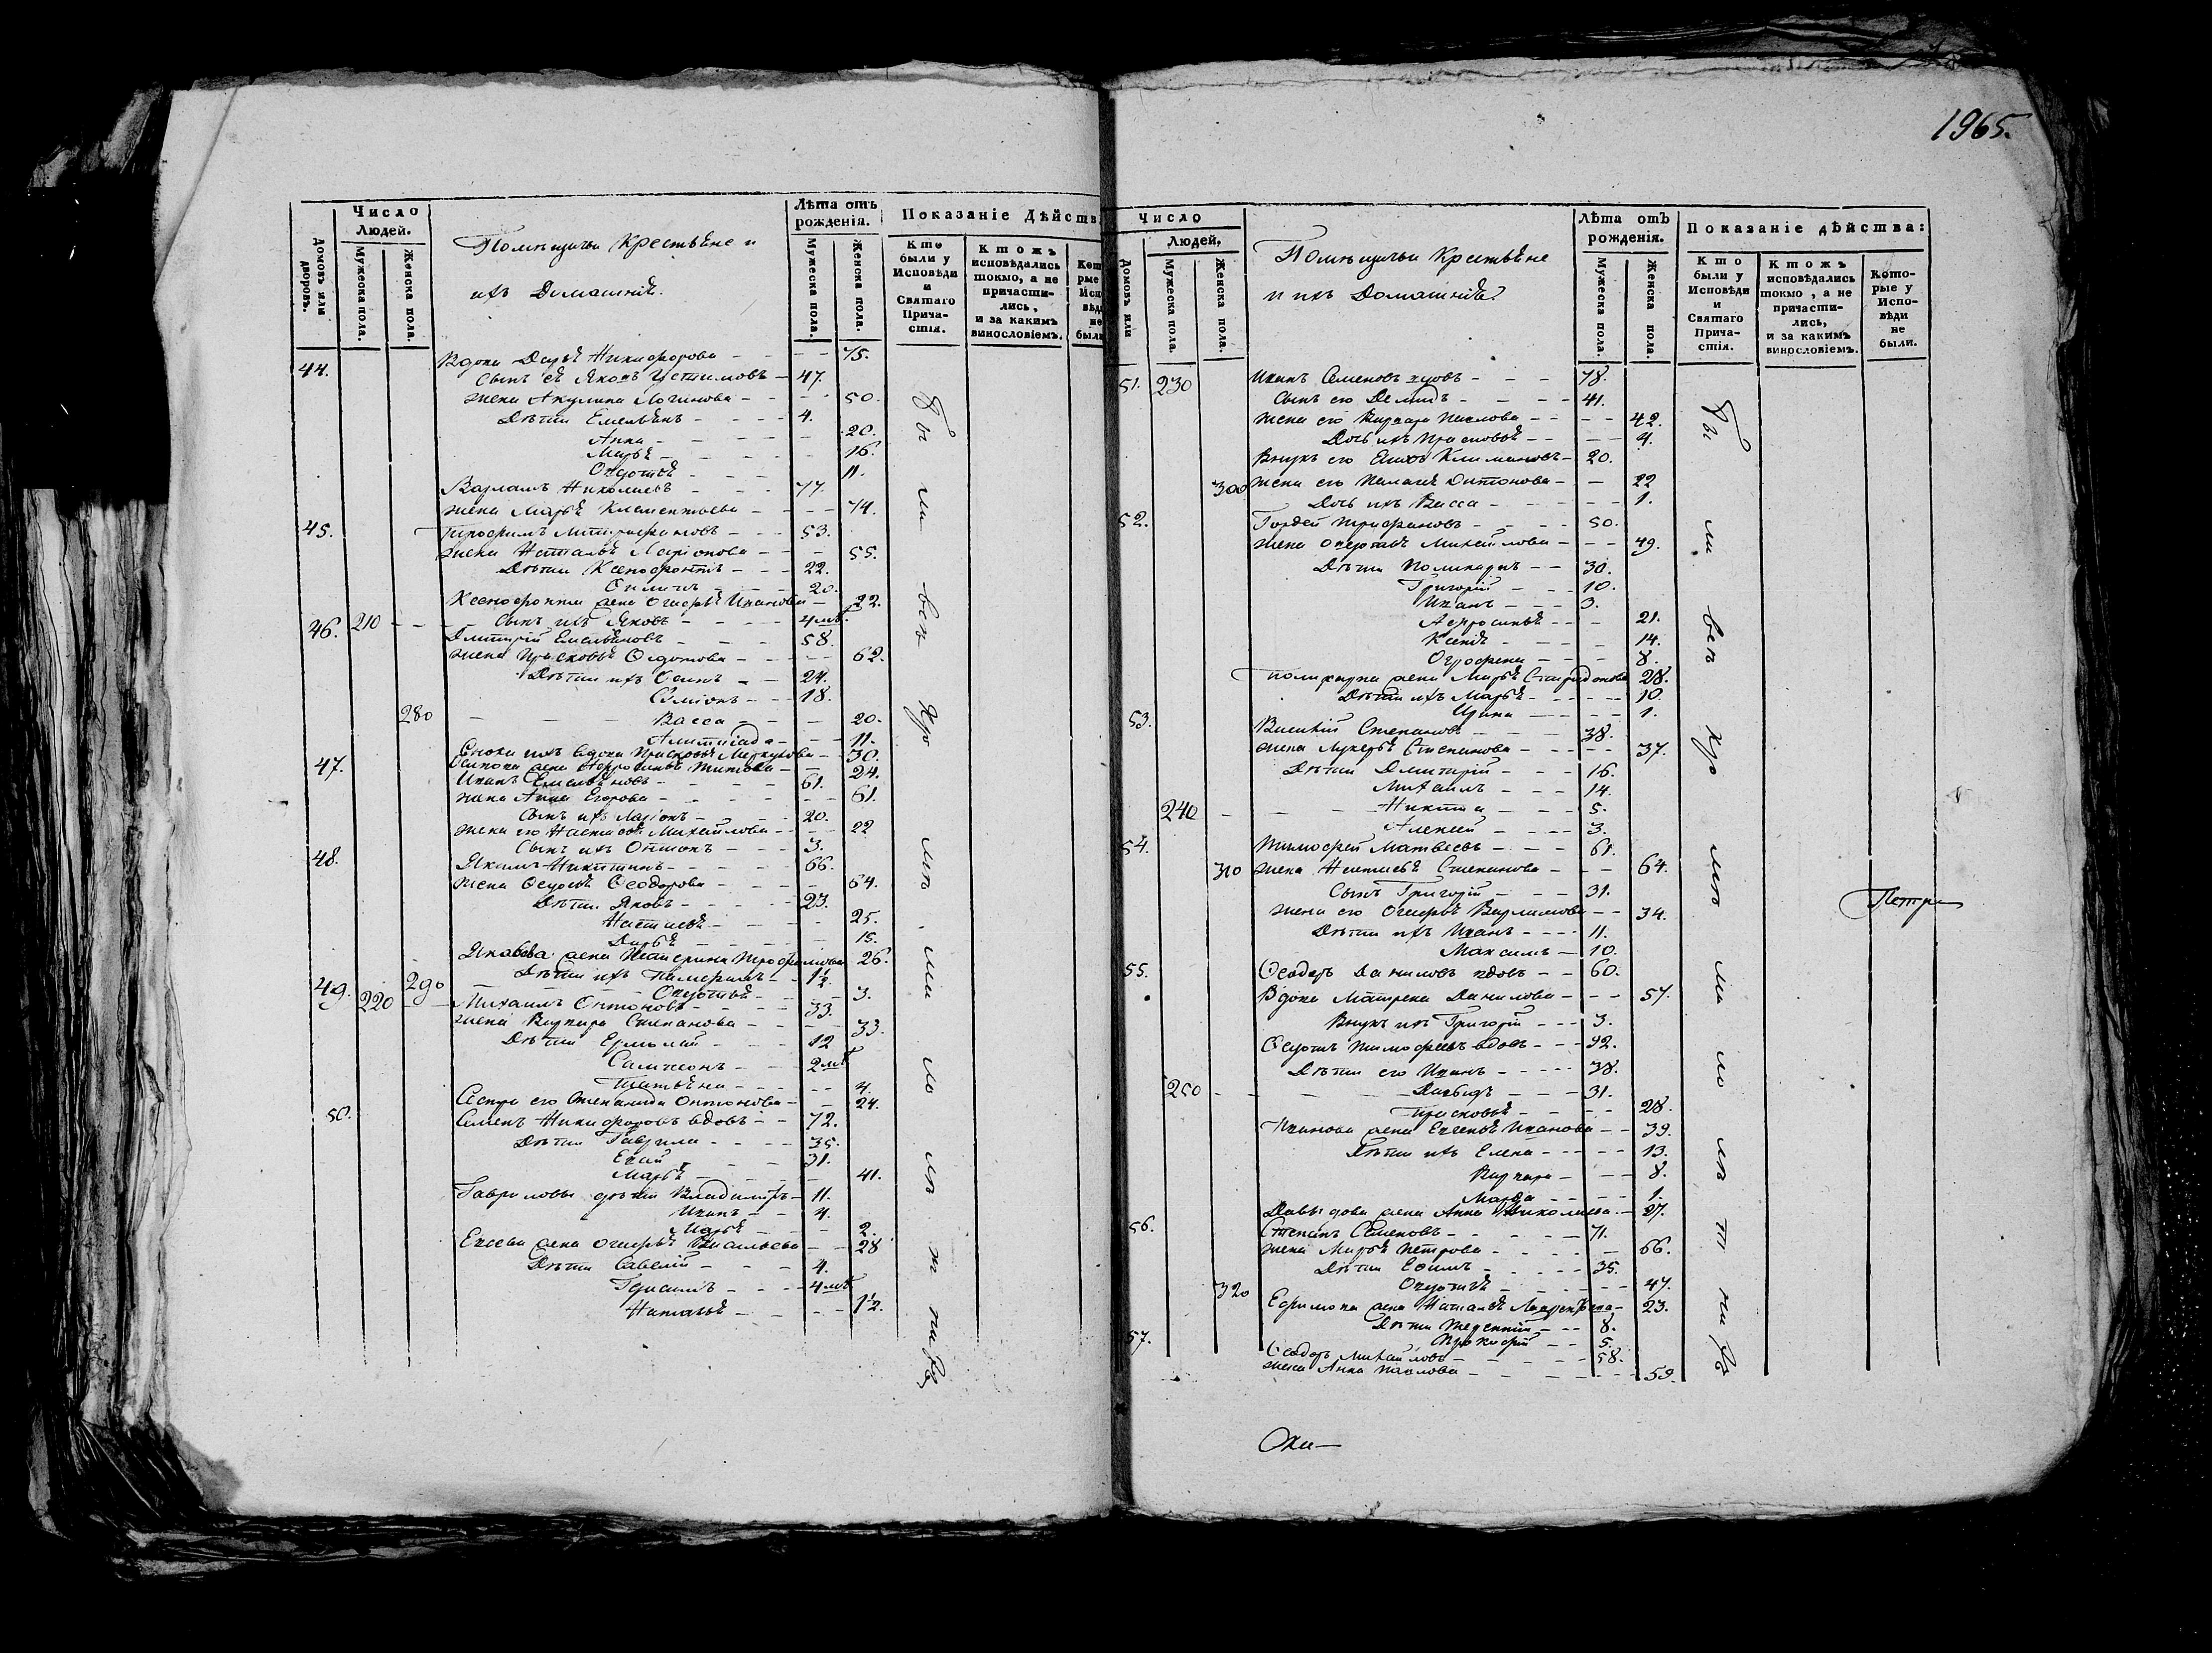 1965.
Число Людей.
Домовъ или дворовъ.
Мужеска пола.
Женска пола.
Помѣщичьи Крестьяне и
ихъ Домашніе.
Лѣта отъ рожденія.
Мужеска пола.
Женска пола.
Показаніе Дѣйств
Кто были у Исповѣди и Святаго Прича-стія.
Ктожъ исповѣдались токмо, а не причасти-лись, и за какимъ винословіемъ.
44. Вдова Дарья Никифорова - - 75.
Сынъ ея Яковъ - 47.
жена Акулина Логинова - - 50.
Дѣти Емельянъ - - - 4.
Анна - - - 20.
Марья - - - 16.
11.
Варламъ Николаевъ - - 77.
жена Марья Климентьева - - 74.
45. Трофимъ Митрофановъ - - 53.
жена Наталья Ларіонова - - 55.
Дѣти Ксенофонтъ - - - 22.
20.
Ксенофонта жена Иванова - 22.
Сынъ ихъ Яковъ - - - 4 мѣ.
46. 210 Дмитрій Емельяновъ - - - 58.
жена Прасковья Федотова - - 62.
Дѣти ихъ Осипъ - - 24.
Симіонъ - - 18.
280 Васса - - 20.
11.
Сноха ихъ вдова Прасковья - 30.
Осипова жена Титова - 24.
47. Иванъ Емельяновъ - - - 61.
жена Анна Егорова - - - 61.
Сынъ ихъ Ларіонъ - - - 20.
жена его Настасья Михайлова - - 22
Сынъ ихъ Антонъ - - - 3.
48. Якимъ Никитинъ - - - 66.
жена Федосья Феодорова - - - 64.
Дѣти Яковъ - - - 23.
Настасья - - - 25.
Дарья - - - 15.
Якова жена Катерина Трофимова 26.
Дѣти ихъ - - 1½.
290 - 3.
49. 220 Михаилъ Онтоновъ - - - 33.
жена Варвара Степанова - - 33.
Дѣти Ермолай - - - 12
Сампсонъ - - 2 мѣ
Татьяна - - - 4.
Сестра его Степанида Онтонова - 24.
50. Семенъ Никифоровъ вдовъ - - 72.
Дѣти Гаврила - - - 35.
31.
Марья - - - 41.
Гавриловы дѣти Владимиръ - 11.
Иванъ - - 4.
Марья - - 2.
жена Васильева - - 28
Дѣти Савелій - - - 4.
4 мѣ
Наталья - - - 1½.
Число
Людей,
Домовъ или
Мужеска пола.
Женска пола.
Помѣщичьи Крестьяне
и ихъ Домашніе
Лѣта отъ рожденія.
Мужеска пола.
Женска пола.
Показаніе дѣйства:
Кто были у Исповѣди и Святаго Прича-стія.
Ктожъ исповѣдались токмо, а не причасти-лись, и за какимъ винословіемъ.
Кото-рые у Испо-вѣди не были.
51. 230 Иванъ Семеновъ вдовъ - - - 78.
Сынъ его Демидъ - - - 41.
жена его Варвара Павлова - - 42.
Дочь ихъ Прасковья - - 4.
Внукъ его Климановъ - 20.
300 жена его Пелагея Антонова - - 22
Дочь ихъ Васса - - - 1.
52. Гордей Трифоновъ - - - 50.
жена Михайлова - - - 49.
Дѣти Поликарпъ - - 30.
Григорій - - - 10.
Иванъ - - - 3.
21.
Ксенія - - - 14.
Огрофена - - - 8.
Поликарпа жена Марья Спиридонова 28.
Дѣти ихъ Марья - - - 10.
Ирина - - - 1.
53. Василій Степановъ - - - 38.
жена Лукерья Степанова - - - 37.
Дѣти Дмитрій - - - 16.
Михаилъ - - - 14.
240 Никита - - - 5.
Алексей - - - 3.
54. Тимофей Матвеевъ - - - 61.
310 жена Настасья Степанова - - - 64.
Сынъ Григорій - - - 31.
жена его Варламова - - 34.
Дѣти ихъ Иванъ - - - 11.
Максимъ - 10.
Петра
55. Феодоръ Даниловъ вдовъ - - 60.
Вдова Матрена Данилова - - - 57.
Внукъ ихъ Григорій - - - 3.
Тимофеевъ вдовъ - - -
Дѣти его Иванъ - - - - 38.
250 Давыдъ - - - 31.
Прасковья - - - 28.
Иванова жена Евгенья Иванова - - 39.
Дѣти ихъ Елена - - - 13.
Варвара - - - 8.
Марфа - - - 1.
Давыдова жена Анна Николаева - 27.
56. Степанъ Семеновъ - - - 71.
жена Марья Петрова - - - 66.
Дѣти Ефимъ - - - 35.
320 47.
Ефимова жена Наталья Лаврентьева - 23.
Дѣти Терентій - - 8.
Прокофій - - 5.
57. Феодоръ Михайловъ - - - 58.
жена Анна Павлова - - - 59.